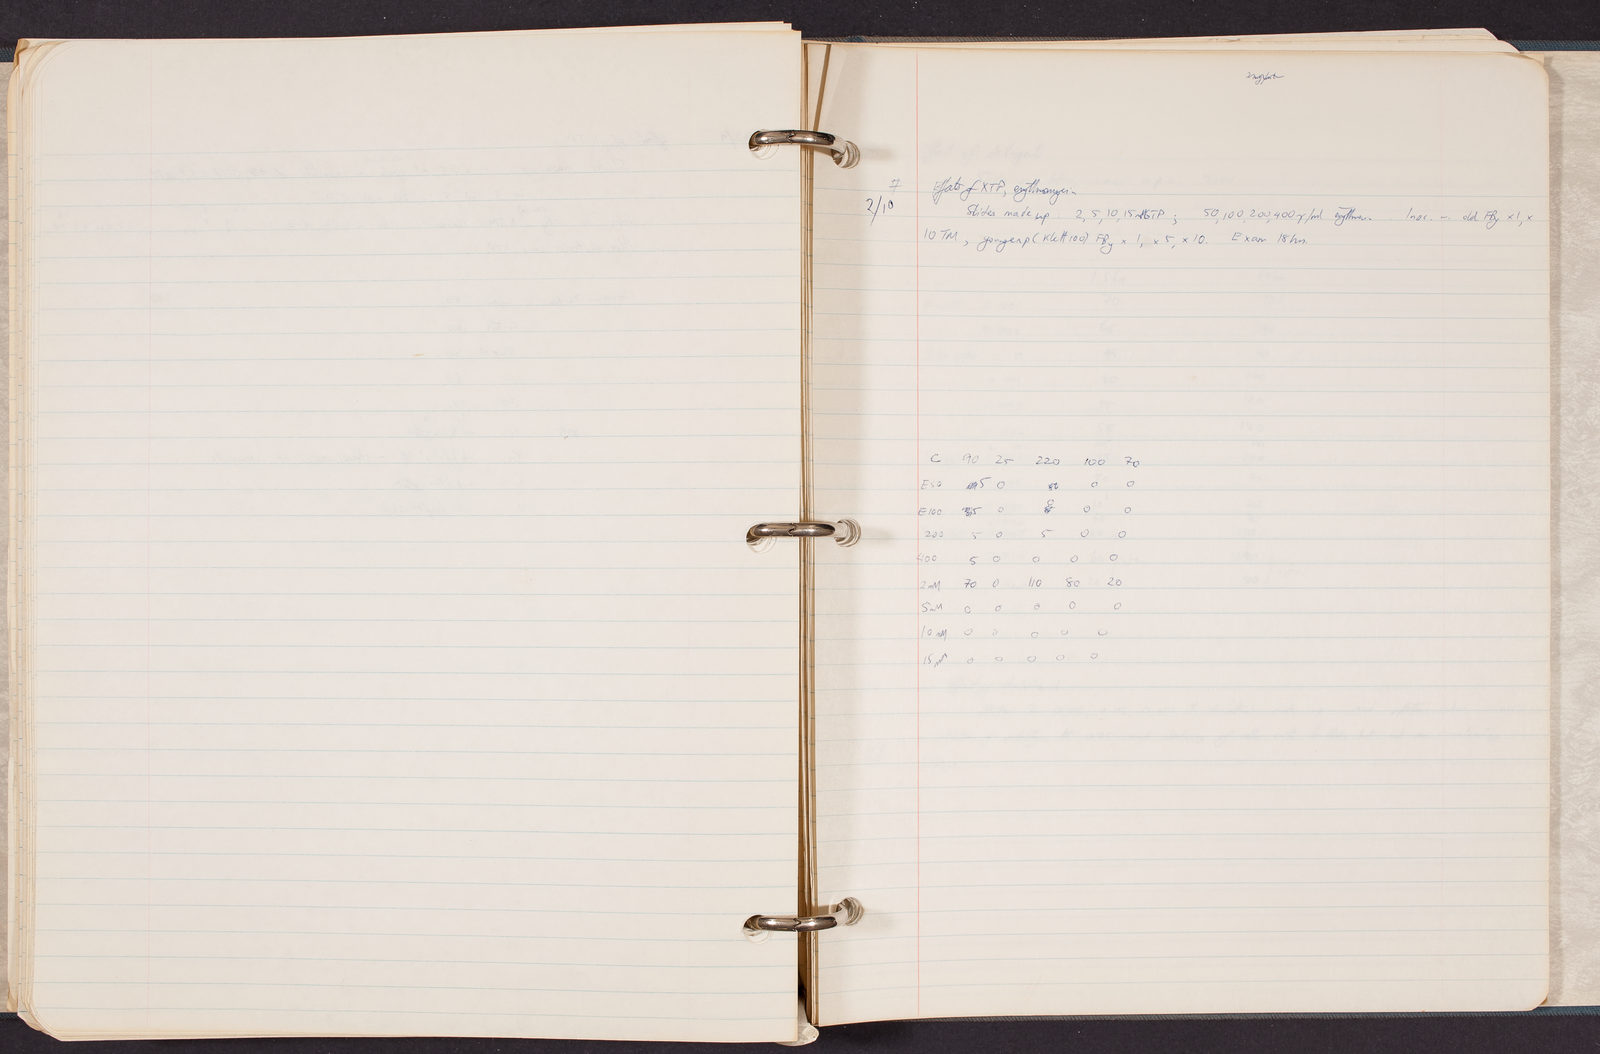 #
2/10 Effects of XTP, erythromycin
Slides made up 2, 5, 10, 15 mM GTP ; 50, 100, 200, 400 γ/ml erythro Inoc. old FBy x 1, x
10 TM, young exp (Klett 100) FBy x 1, x 5, x 10. Exam 18 hrs.
C 90 25 220 100 70
E50 5 0 0 0
E100 5 0 0 0 0
200 5 0 5 0 0
400 5 0 0 0 0
2mM 70 0 110 80 20
5mM 0 0 0 0 0
10 mM 0 0 0 0 0
15 mM 0 0 0 0 0